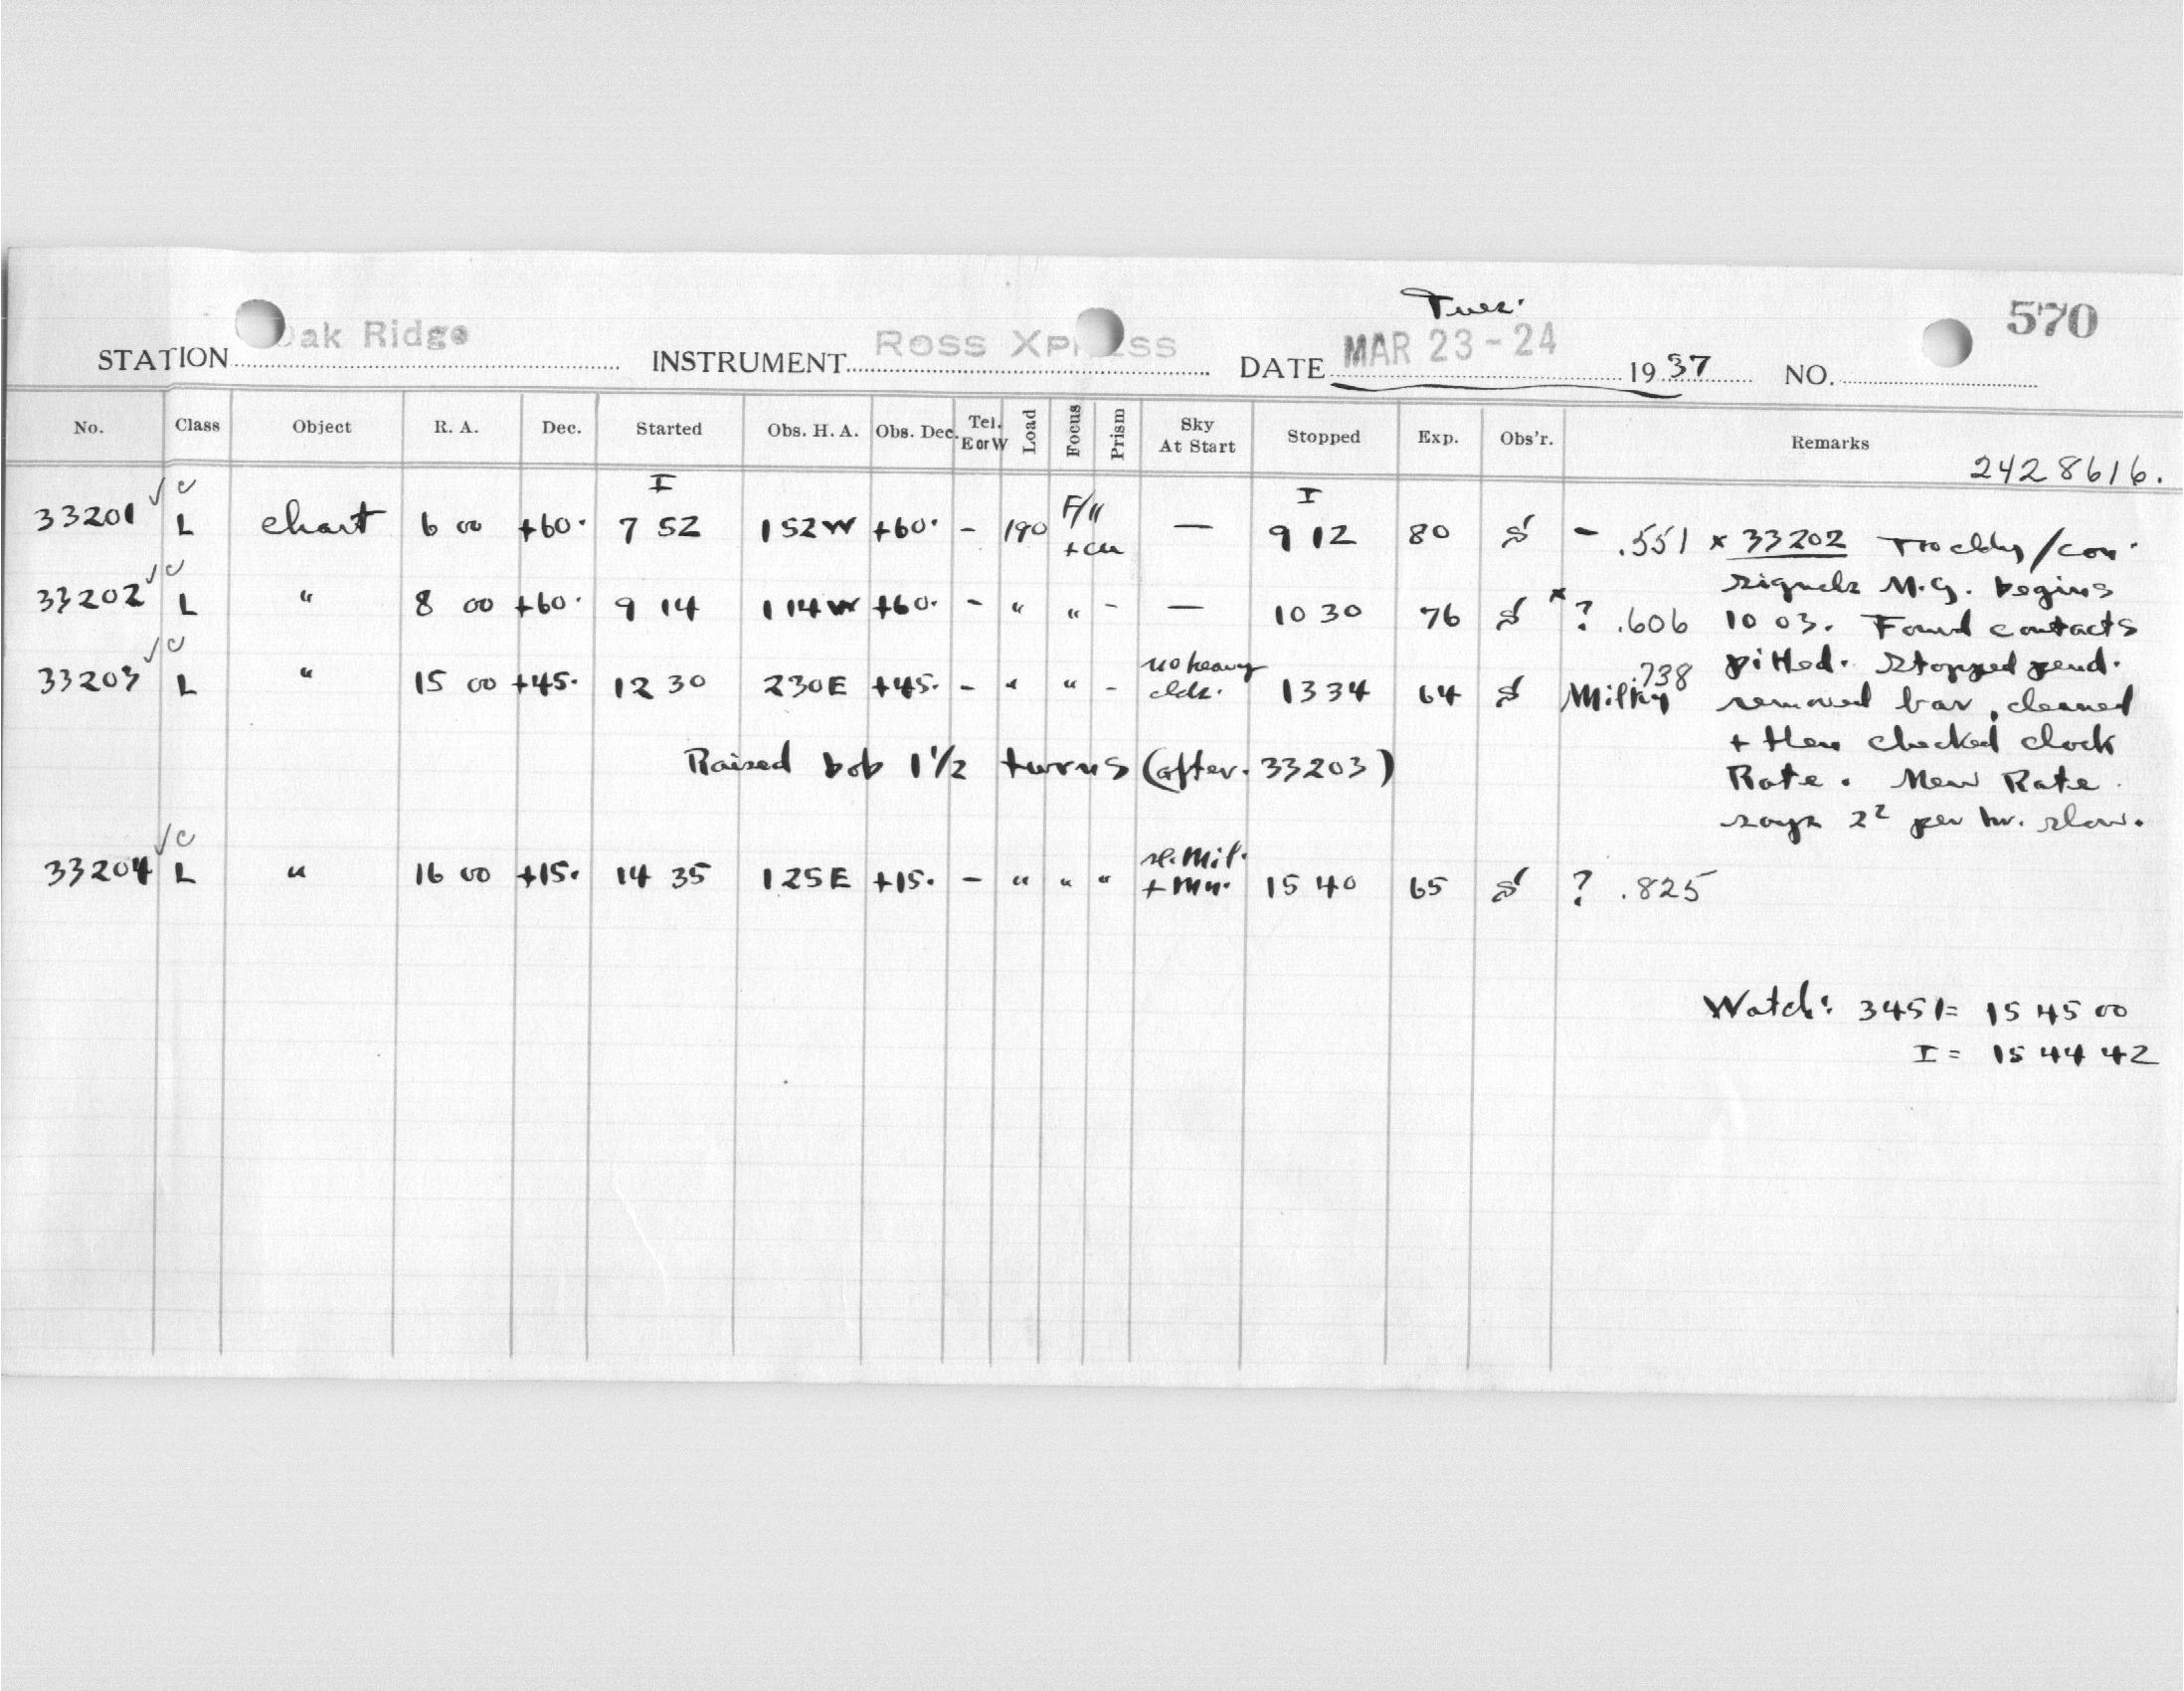 Tues.
570
STATION Oak Ridge INSTRUMENT Ross Xpress DATE MAR 23-24 1937 NO.
No. Class Object R. A. Dec. Started Obs. H. A. Obs. Dec. Tel. E or W Load Focus Prism Sky At Start Stopped Exp. Obs'r. Remarks
2428616.
I I
33201 √ c L chart 6 00 +60° 7 52 1 52 W +60° - 190 F/11 — 9 12 80 - .551
33202 √ c L " 8 00 +60° 9 14 1 14 W +60° - " " - — 10 30 76 x ? .606
33203 √ c L " 15 00 +45° 12 30 2 30 E +45° - " " - no heavy clds. 13 34 64 Milky .738
Raised bob 1 1/2 turns (after 33203)
33204 √ c L " 16 00 +15° 14 35 1 25 E +15° - " " " sl. Mil. + Mn. 15 40 65 ? .825
x 33202 con.
signals M.G. begins
10 03. Found contacts
pitted. Stopped pend.
removed bar, cleaned
+ then checked clock
Rate. New Rate
says 2² per hr. slow.
Watch: 3451= 15 45 00
I = 15 44 42